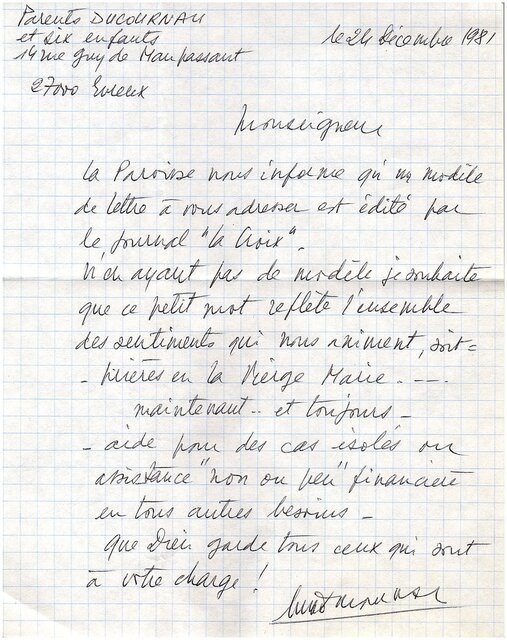 Parents DUCOURNAU
et six enfants
14 rue guy de Maupassant
27000 Evreux
le 24 Décembre 1981
Monseigneur
La Paroisse nous informe qu'un modèle
de lettre à vous adresser est édité par
le journal "la Croix".
N'en ayant pas de modèle je souhaite
que ce petit mot reflète l'ensemble
des sentiments qui nous animent, soit =
- Prières en la Vierge Marie . - - .
maintenant .. et toujours -
- aide pour des cas isolés ou
assistance "non ou peu" financière
en tous autres besoins -
que Dieu garde tous ceux qui sont
à votre charge !